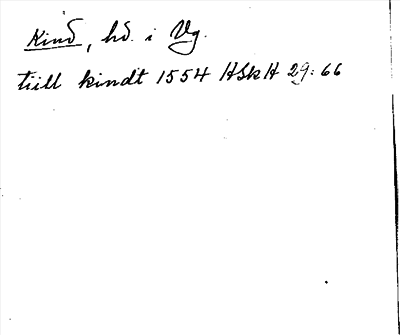 Kind, hd. i Vg.
tiill kindt 1554 HSkH 29:66